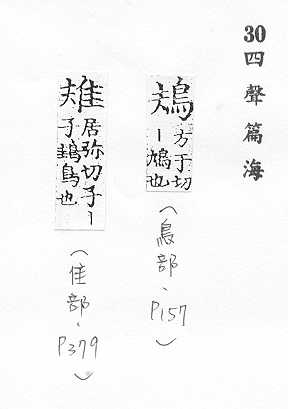 30四聲篇海
鳺
方于切
｜鳩也
(鳥部、P157)
居弥切子｜
子鳥也
(隹部、P379)